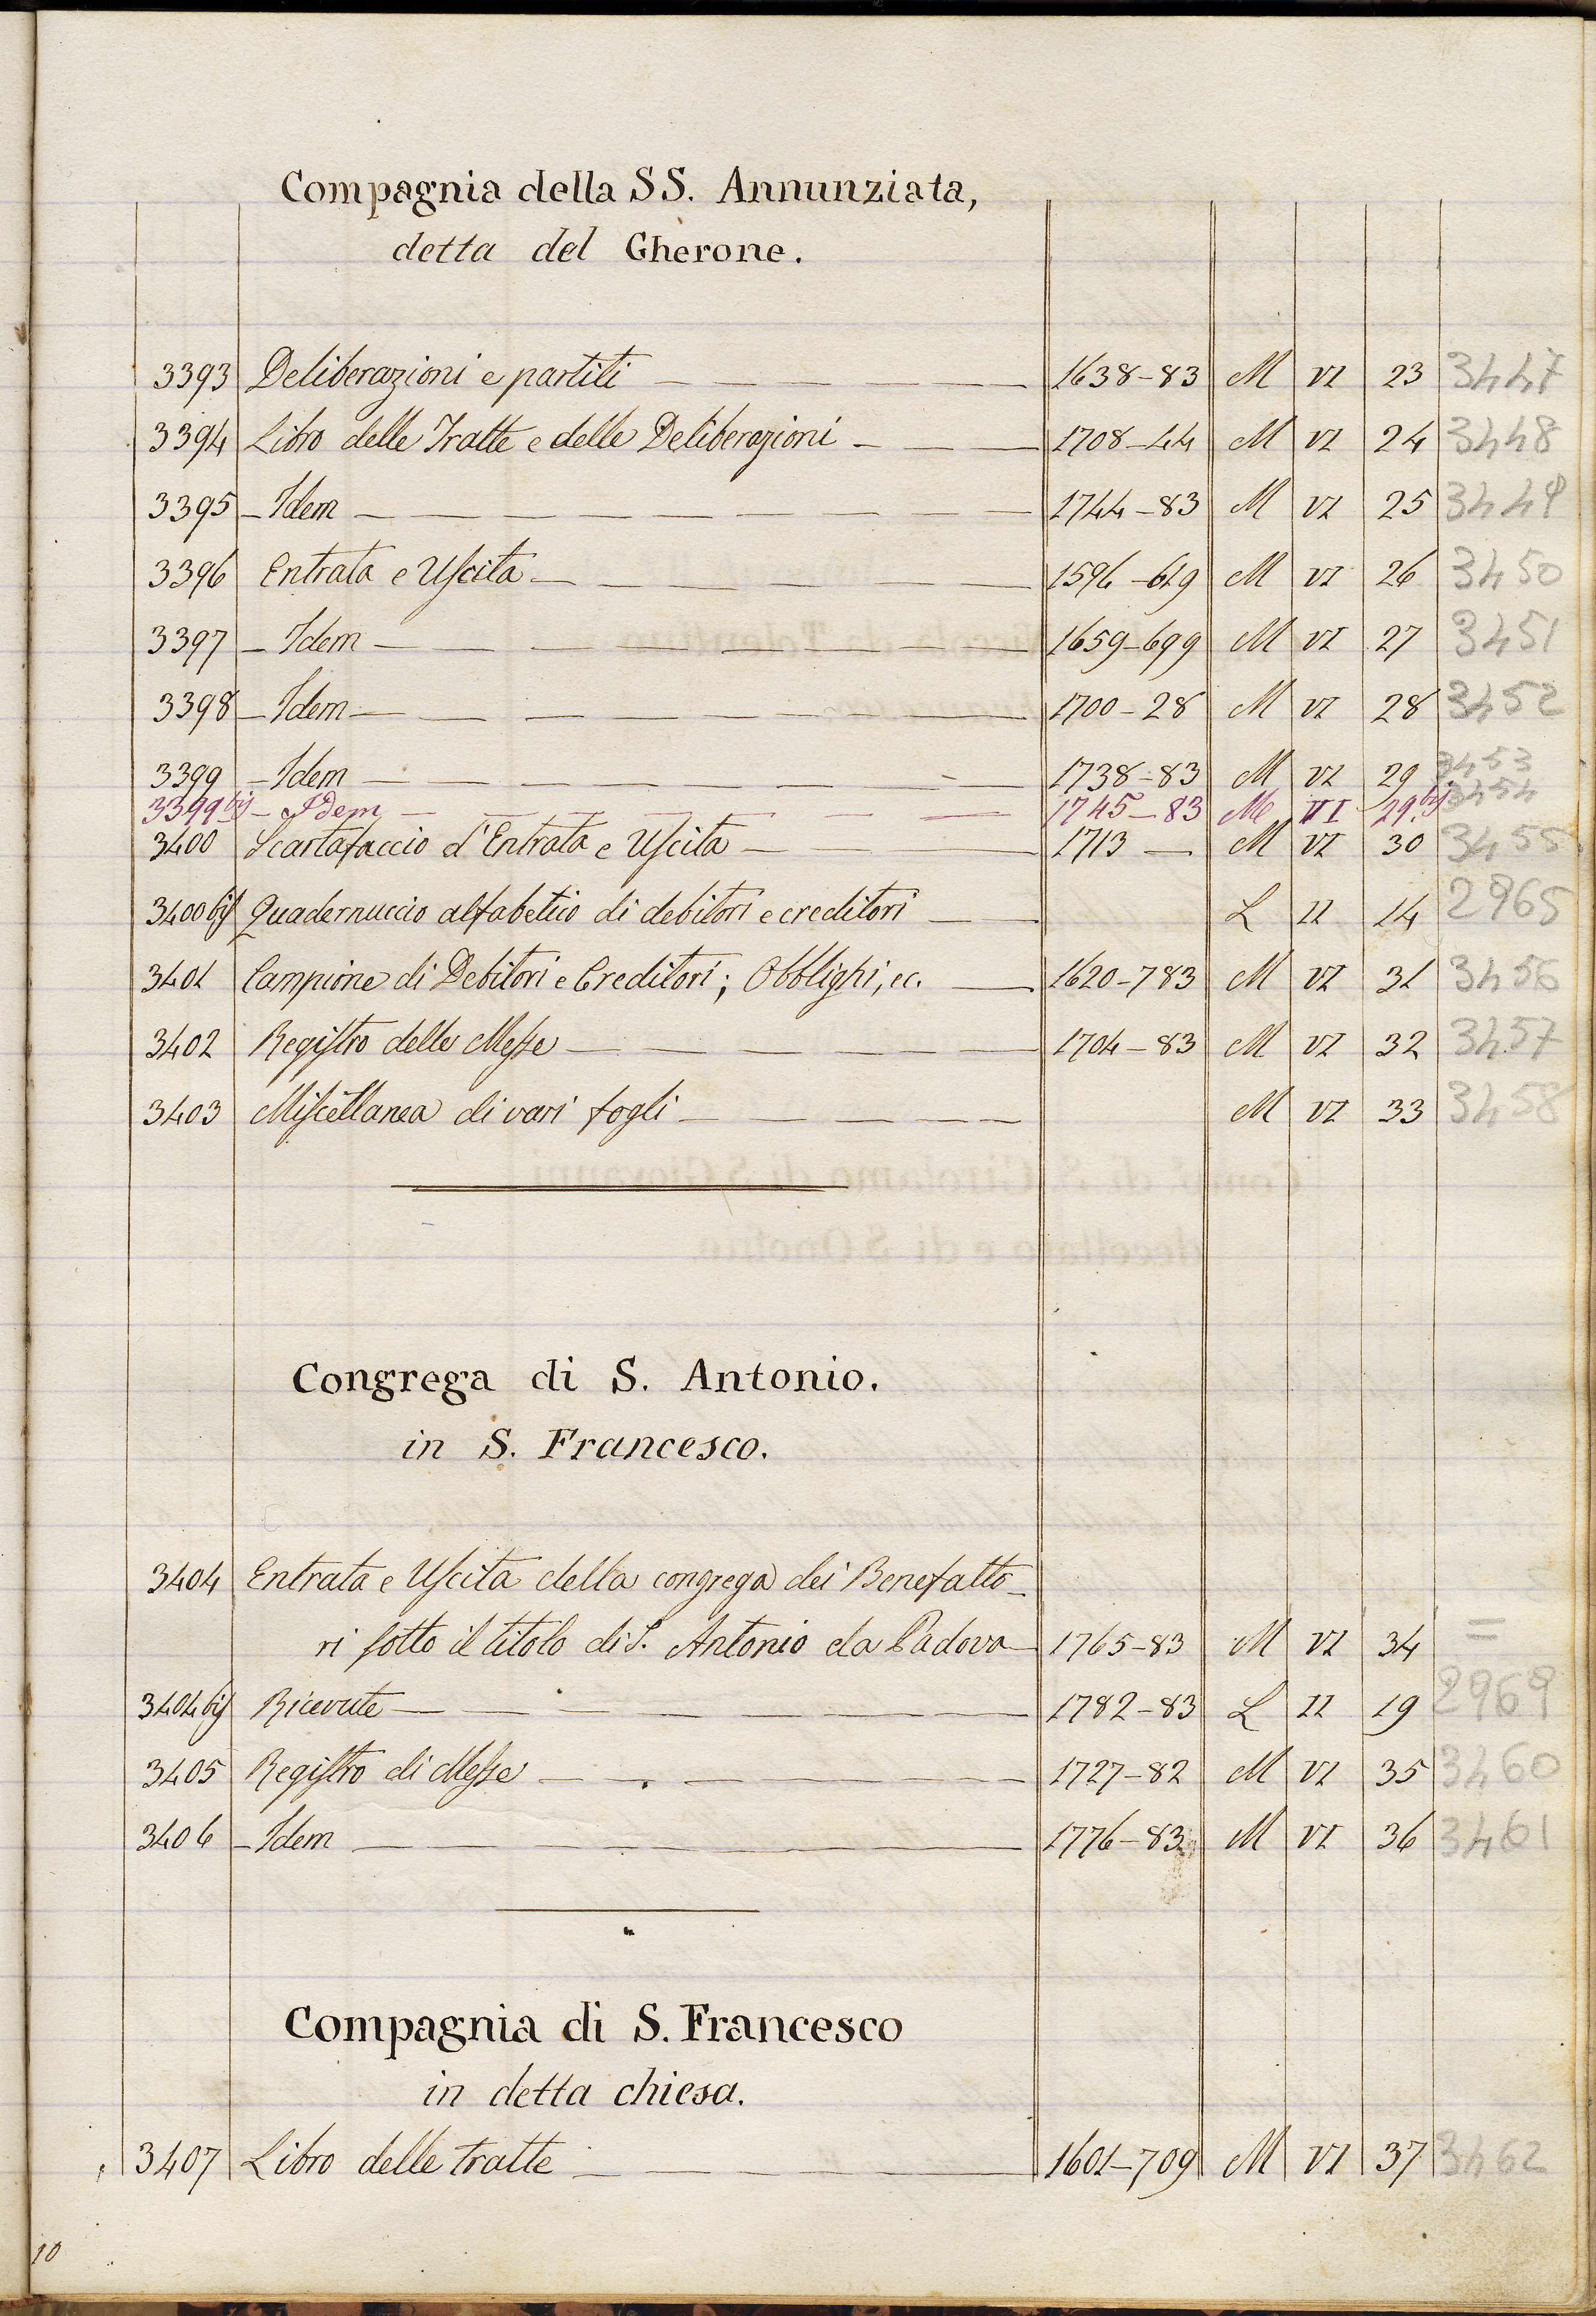 Compagnia della SS. Annunziata,
detta del Gherone.
3393 Deliberazioni e partiti — 1638-83 M VI 23 3447
3394 Libro delle Tratte e delle Deliberazioni — 1708-44 M VI 24 3448
3395 - Idem — 1744-83 M VI 25 3449
3396 Entrata e Uscita — 1596-619 M VI 26 3450
3397 - Idem — 1659-699 M VI 27 3451
3398 - Idem — 1700-28 M VI 28 3452
3399 - Idem — 1738-83 M VI 29 3453
3399 bis - Idem — 1745-83 M VI 29 bis 3454
3400 Scartafaccio d'Entrata e Uscita — 1713 — M VI 30 3455
3400 bis Quadernuccio alfabetico di debitori e creditori — L II 14 2965
3401 Campione di Debitori e Creditori; Obblighi, ec. — 1620-783 M VI 31 3456
3402 Registro delle Messe — 1704-83 M VI 32 3457
3403 Miscellanea di vari fogli — M VI 33 3458
Congrega di S. Antonio.
in S. Francesco.
3404 Entrata e Uscita della congrega dei Benefatto-
ri sotto il titolo di S. Antonio da Padova — 1765-83 M VI 34 =
3404 bis Ricevute — 1782-83 L II 19 2969
3405 Registro di Messe — 1727-82 M VI 35 3460
3406 - Idem — 1776-83 M VI 36 3461
Compagnia di S. Francesco
in detta chiesa.
3407 Libro delle tratte — 1601-709 M VI 37 3462
10